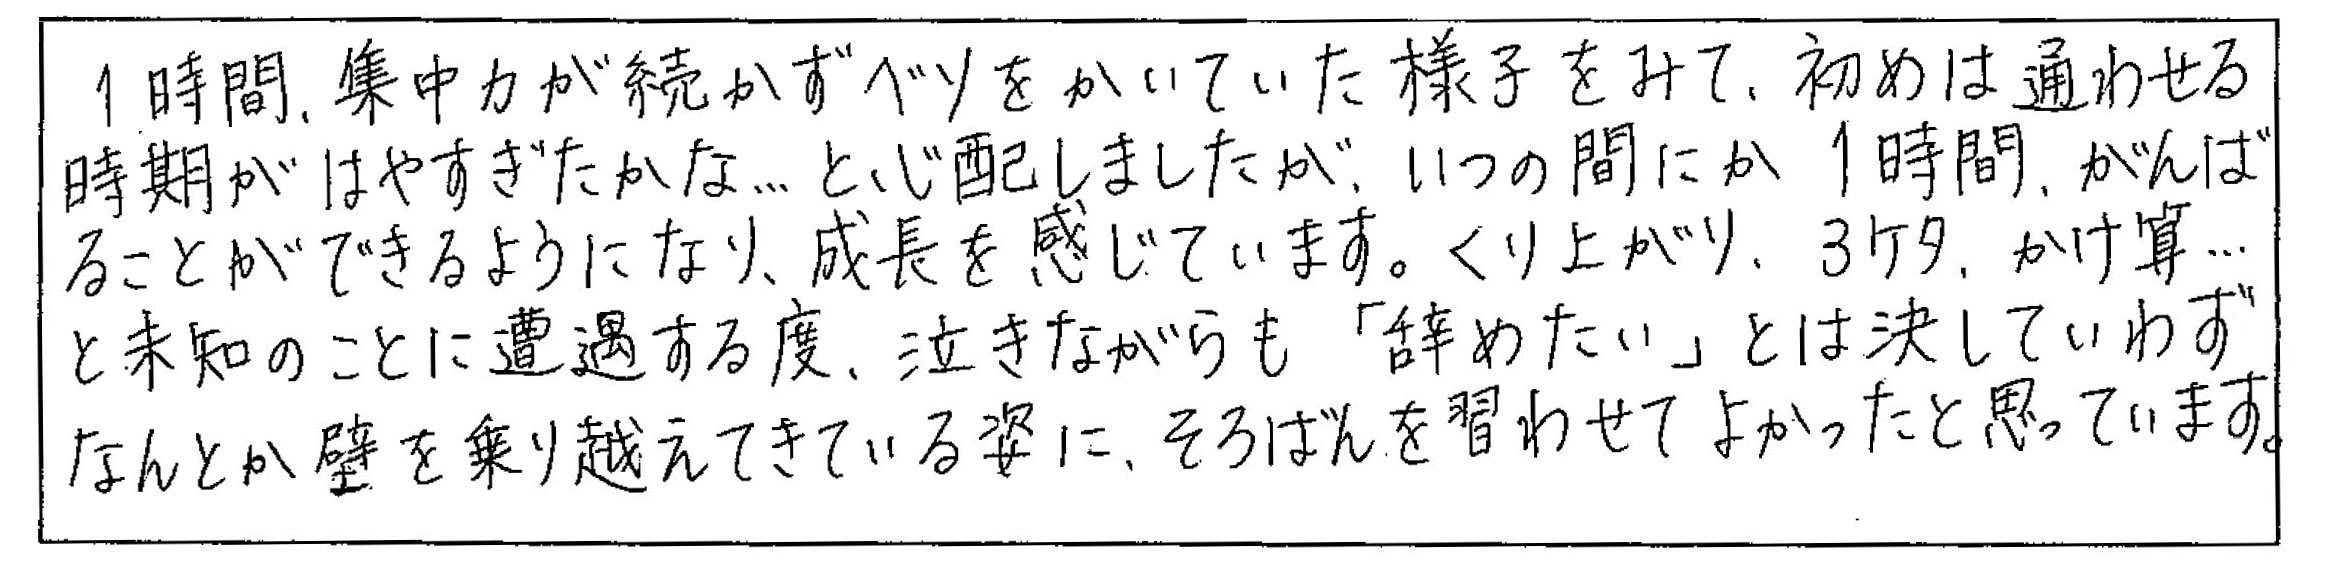 1時間、集中力が続かずベソをかいていた様子をみて、初めは通わせる
時期がはやすぎたかな…と心配しましたが、いつの間にか1時間、がんば
ることができるようになり、成長を感じています。くり上がり、3ケタ、かけ算…
と未知のことに遭遇する度、泣きながらも「辞めたい」とは決していわず
なんとか壁を乗り越えてきている姿に、そろばんを習わせてよかったと思っています。